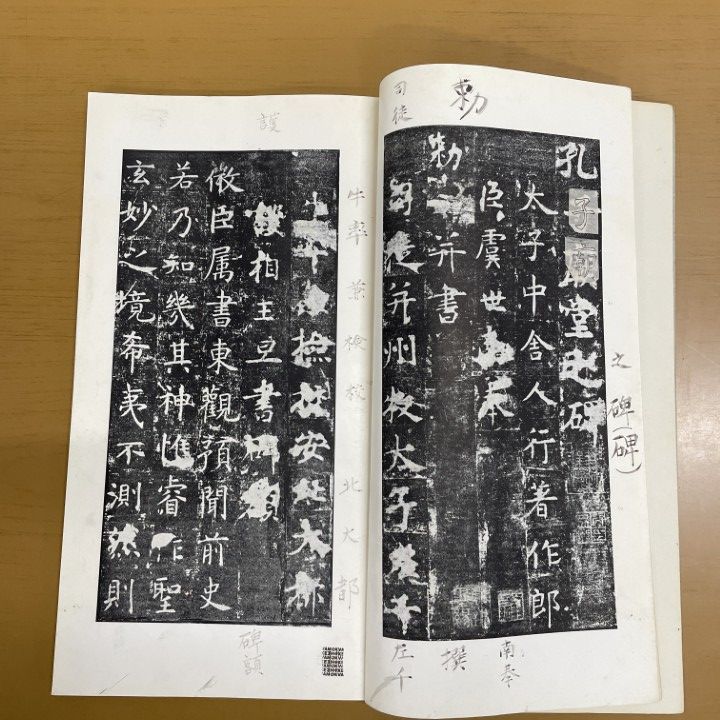 孔子廟堂之碑
太子中舍人行著作郎
臣虞世南奉
勅撰并書
司徒并州牧太子左千
牛率兼檢校安北大都
護相王旦書碑額
微臣属書東觀預聞前史
若乃知幾其神惟睿作聖
玄妙之境希夷不測然則
之碑碑)
南奉
勅
撰
司徒
左千
牛率兼検校北大都
護
碑額